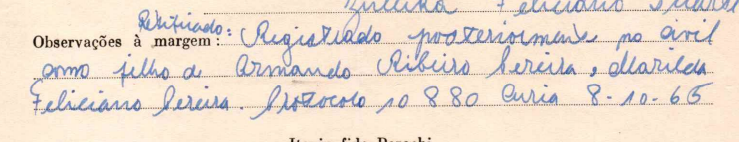 Feliciano
Retificado:
Observações à margem: Registrado posteriormente no civil
como filho de Armando Ribeiro Pereira, Marilda
Feliciano Pereira. Protocolo 10880 Curia 8-10-65
In fide Parochi